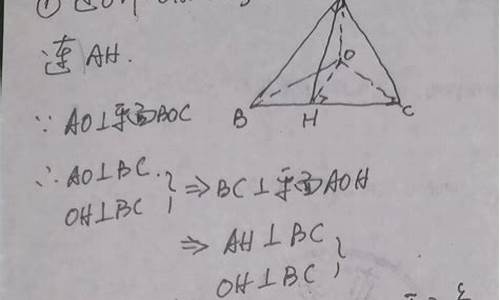 ① 过O作
连 AH.
∵ AO⊥平面BOC
∴ AO⊥BC
OH⊥BC } ⇒ BC⊥平面AOH
⇒ AH⊥BC
OH⊥BC }
O
B H C